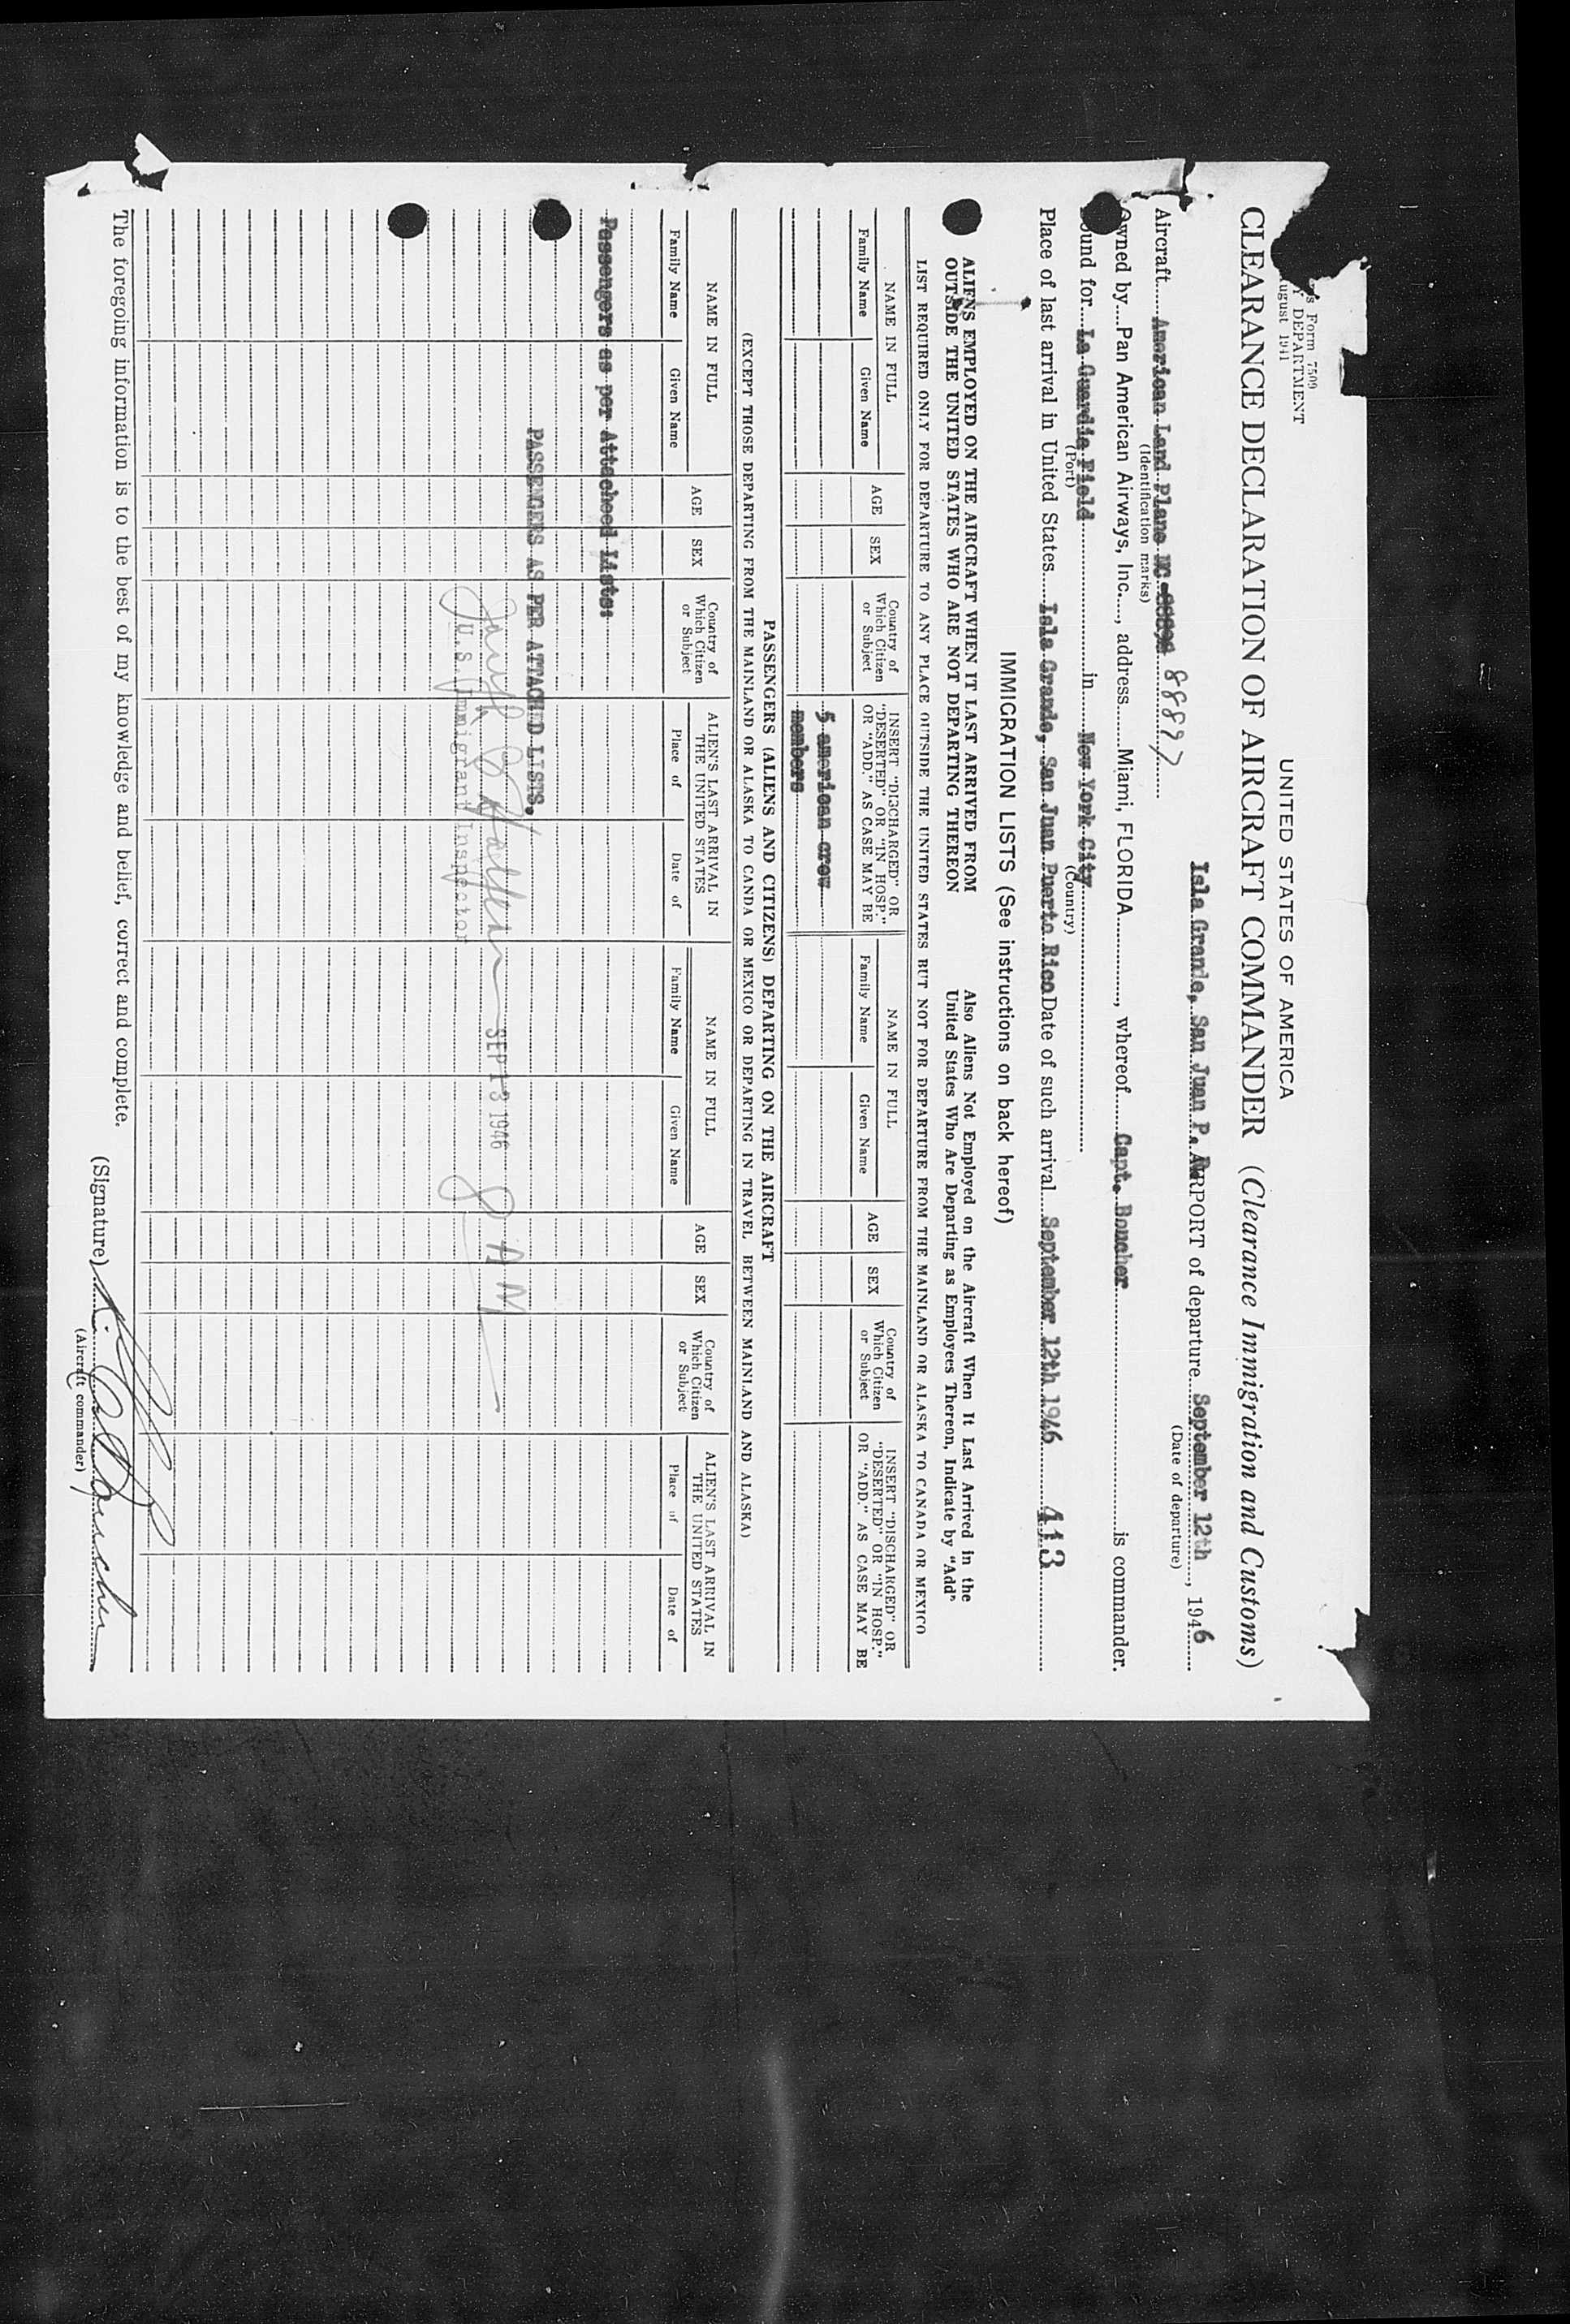 s Form 7509
Y DEPARTMENT
ugust 1941
UNITED STATES OF AMERICA
CLEARANCE DECLARATION OF AIRCRAFT COMMANDER (Clearance Immigration and Customs)
Isla Grande, San Juan P. AIRPORT of departure September 12th, 1946
(Date of departure)
Aircraft American Land Plane NC 88897
(Identification marks)
Owned by Pan American Airways, Inc., address Miami, FLORIDA, whereof Capt. Boucher is commander.
ound for La Guardia Field in New York City
(Port) (Country)
Place of last arrival in United States Isla Grande, San Juan Puerto Rico Date of such arrival September 12th 1946 413
IMMIGRATION LISTS (See instructions on back hereof)
ALIENS EMPLOYED ON THE AIRCRAFT WHEN IT LAST ARRIVED FROM
OUTSIDE THE UNITED STATES WHO ARE NOT DEPARTING THEREON
Also Aliens Not Employed on the Aircraft When It Last Arrived in the
United States Who Are Departing as Employees Thereon, Indicate by "Add"
LIST REQUIRED ONLY FOR DEPARTURE TO ANY PLACE OUTSIDE THE UNITED STATES BUT NOT FOR DEPARTURE FROM THE MAINLAND OR ALASKA TO CANADA OR MEXICO
NAME IN FULL
Family Name Given Name
AGE
SEX
Country of
Which Citizen
or Subject
INSERT "DISCHARGED" OR
"DESERTED" OR "IN HOSP."
OR "ADD." AS CASE MAY BE
NAME IN FULL
Family Name Given Name
AGE
SEX
Country of
Which Citizen
or Subject
INSERT "DISCHARGED" OR
"DESERTED" OR "IN HOSP."
OR "ADD." AS CASE MAY BE
5 american crew
members
PASSENGERS (ALIENS AND CITIZENS) DEPARTING ON THE AIRCRAFT
(EXCEPT THOSE DEPARTING FROM THE MAINLAND OR ALASKA TO CANDA OR MEXICO OR DEPARTING IN TRAVEL BETWEEN MAINLAND AND ALASKA)
NAME IN FULL
Family Name Given Name
AGE
SEX
Country of
Which Citizen
or Subject
ALIEN'S LAST ARRIVAL IN
THE UNITED STATES
Place of Date of
NAME IN FULL
Family Name Given Name
AGE
SEX
Country of
Which Citizen
or Subject
ALIEN'S LAST ARRIVAL IN
THE UNITED STATES
Place of Date of
Passengers as per Attached Lists:
PASSENGERS AS PER ATTACHED LISTS.
SEP 13 1946 8 AM
U.S. Immigrant Inspector
The foregoing information is to the best of my knowledge and belief, correct and complete.
(Signature) Boucher
(Aircraft commander)